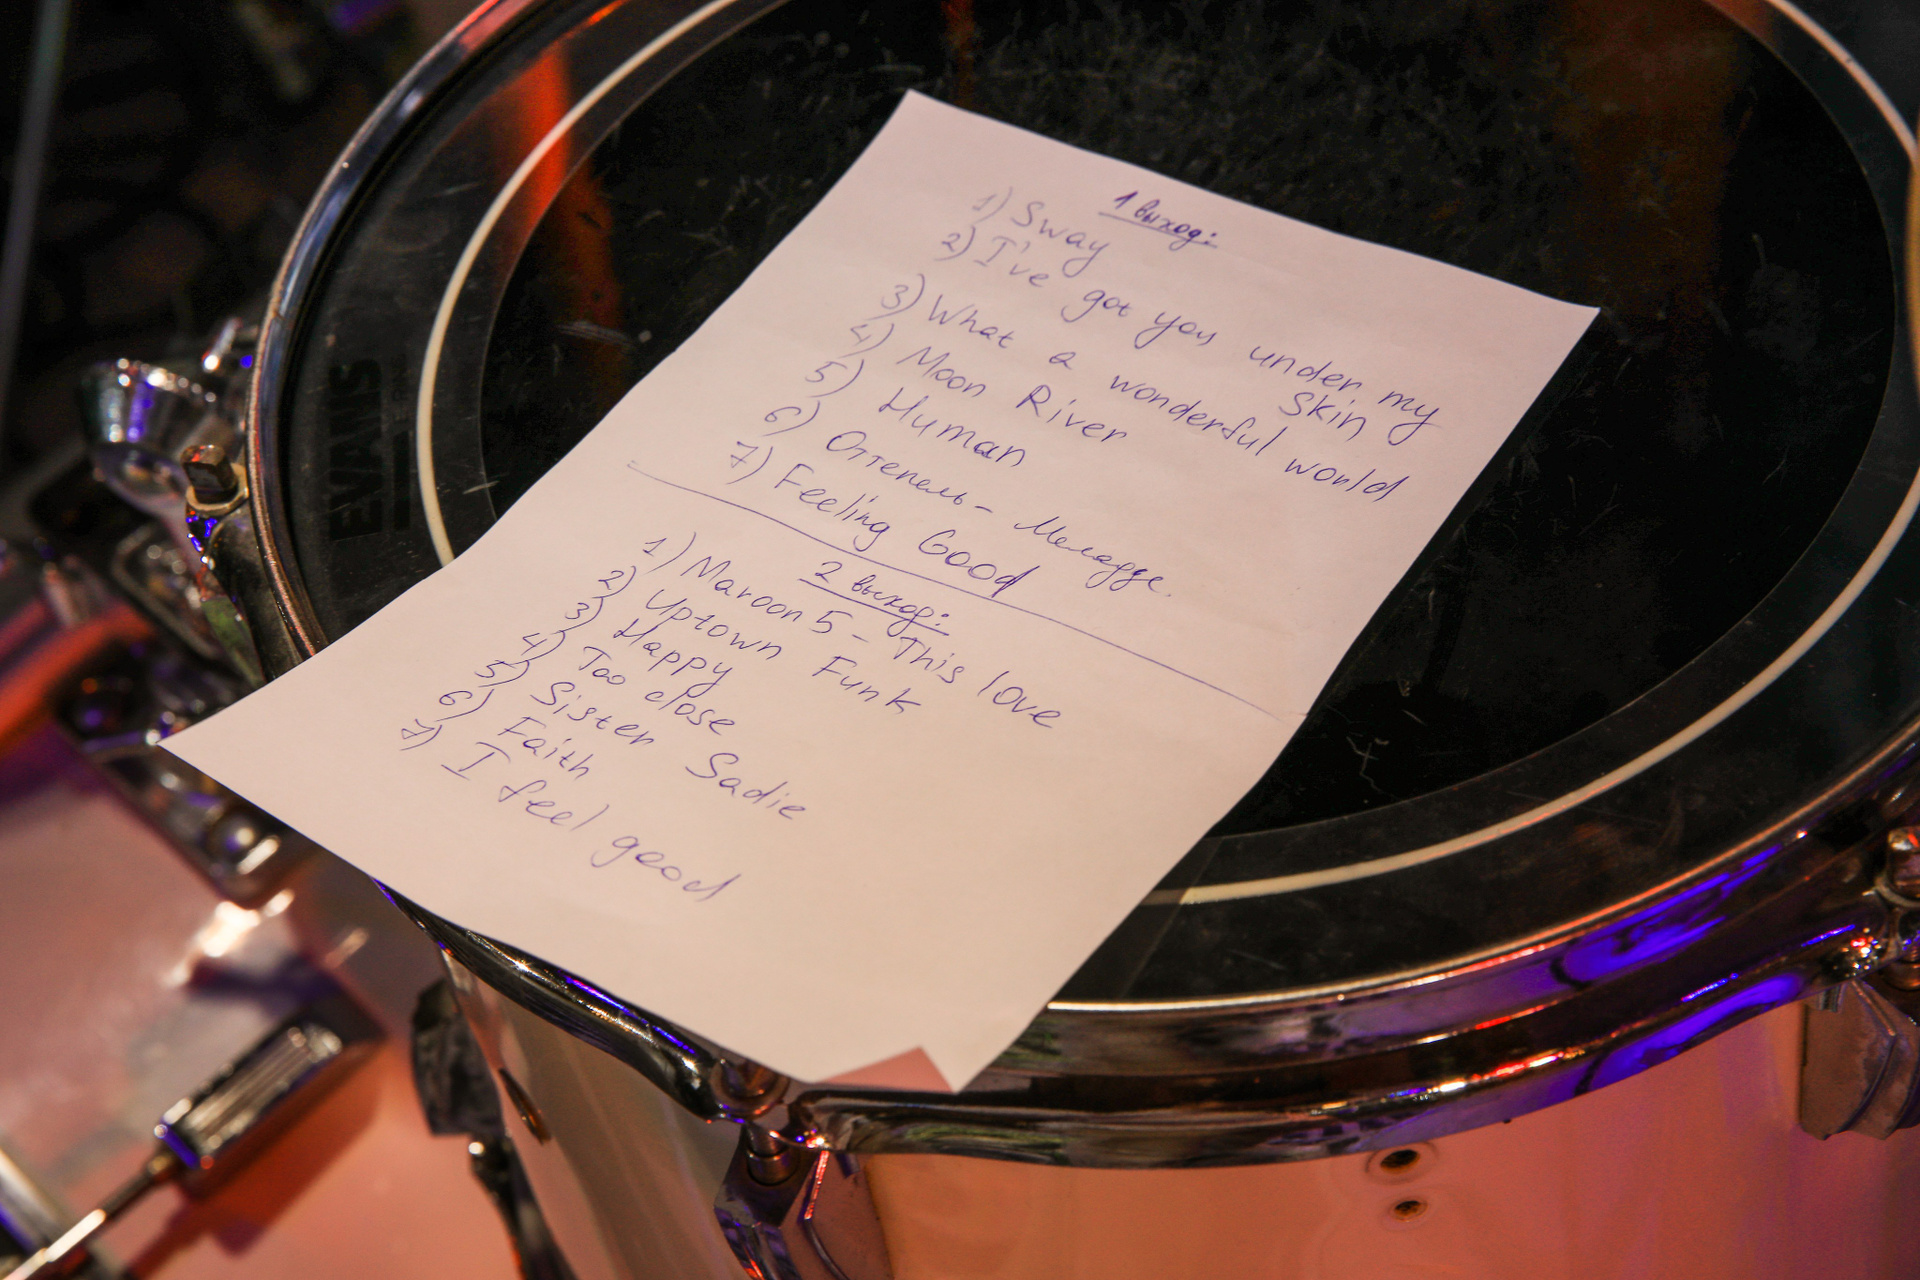 1 выход:
1) Sway
2) I've got you under my
Skin
3) What a wonderful world
4) Moon River
5) Human
6) Оттепель - Меладзе.
7) Feeling Good
2 выход:
1) Maroon 5 - This love
2) Uptown Funk
3) Happy
4) Too close
5) Sister Sadie
6) Faith
7) I feel good
EVANS